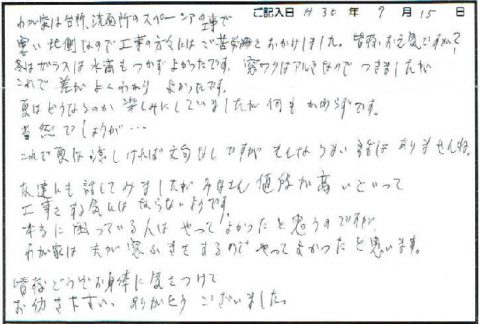 ご記入日 H30年 9月 15日
わが家は台所、洗面所のスペーシアの工事で
寒い北側なので工事の方々にはご苦労をおかけしました。皆様お元気ですか?
冬はガラスは水滴もつかずよかったです。窓ワクはアルミなのでつきましたが
これで差がよくわかりよかったです。
夏はどうなるのか楽しみにしていましたが何もかわらずです。
当然でしょうが…
これで夏は涼しければ文句なしですがそんなうまい話はありませんね。
友達にも話してみましたがみなさん値段が高いといって
工事をする気にはならないようです。
本当に困っている人はやってよかったと思うのですが、
わが家は夫が窓ふきをするのでやってよかったと思います。
皆様どうぞお身体に気をつけて
お励き下さい。ありがとうございました。